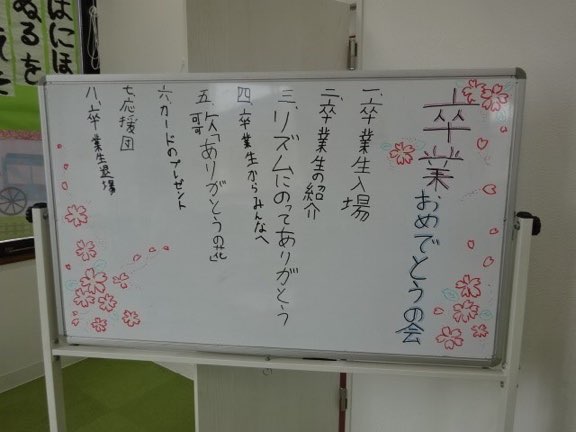 卒業おめでとうの会
一、卒業生入場
二、卒業生の紹介
三、リズムにのってありがとう
四、卒業生からみんなへ
五、歌「ありがとうの花」
六、カードのプレゼント
七、応援団
八、卒業生退場